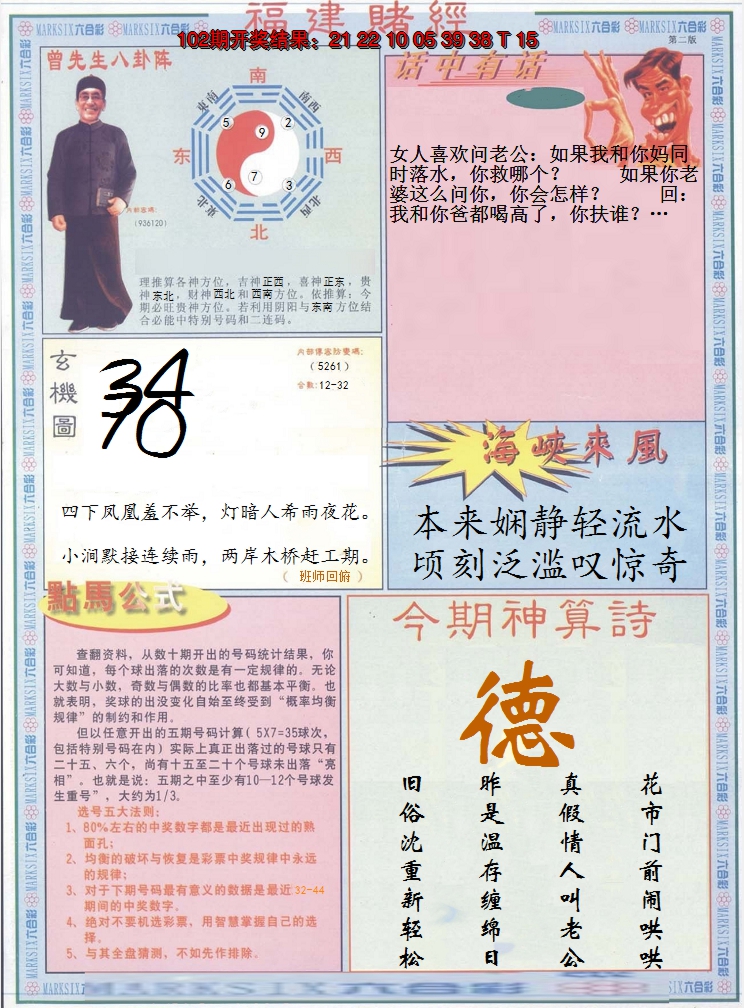 福建賭經
102期开奖结果：21 22 10 05 39 38 T 15
MARKSIX六合彩
第二版
曾先生八卦阵
南
东南
西南
5
2
9
东
西
6
7
3
东北
西北
北
(936120)
理推算各神方位，吉神正西，喜神正东，贵
神东北，财神西北和西南方位。依推算：今
期必旺贵神方位。若利用阴阳与东南方位结
合必能中特别号码和二连码。
话中有话
女人喜欢问老公：如果我和你妈同
时落水，你救哪个？ 如果你老
婆这么问你，你会怎样？ 回：
我和你爸都喝高了，你扶谁？…
玄機圖
34
70
（5261）
合数:12-32
四下凤凰羞不举，灯暗人希雨夜花。
小涧默接连续雨，两岸木桥赶工期。
（ 班师回俯 ）
海峽來風
本来娴静轻流水
顷刻泛滥叹惊奇
點馬公式
查翻资料，从数十期开出的号码统计结果，你
可知道，每个球出落的次数是有一定规律的。无论
大数与小数，奇数与偶数的比率也都基本平衡。也
就表明，奖球的出没变化自始至终受到“概率均衡
规律”的制约和作用。
但以任意开出的五期号码计算( 5X7=35球次，
包括特别号码在内) 实际上真正出落过的号球只有
二十五、六个，尚有十五至二十个号球未出落“亮
相”。也就是说：五期之中至少有10—12个号球发
生重号”，大约为1/3。
选号五大法则：
1、80%左右的中奖数字都是最近出现过的熟
面孔；
2、均衡的破坏与恢复是彩票中奖规律中永远
的规律；
3、对于下期号码最有意义的数据是最近 32-44
期间的中奖数字。
4、绝对不要机选彩票，用智慧掌握自己的选
择。
5、与其全盘猜测，不如先作排除。
今期神算詩
德
花市门前闹哄哄
真假情人叫老公
昨是温存缠绵日
旧俗沈重新轻松